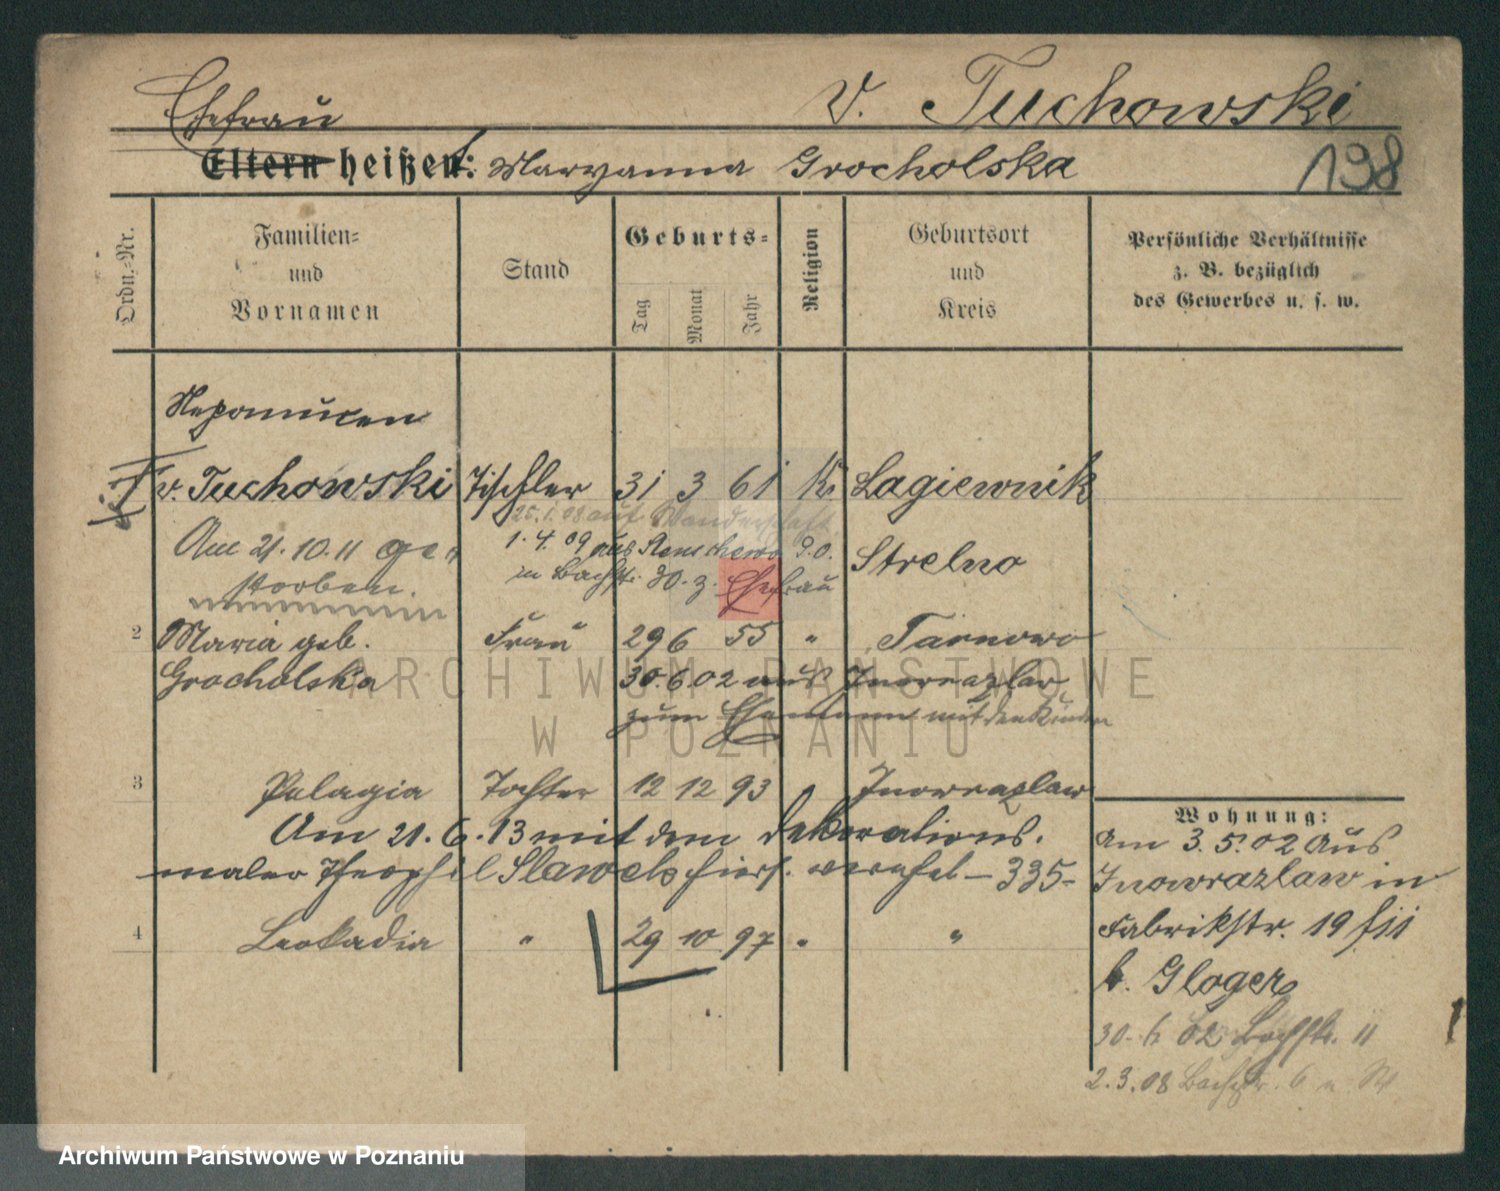 Ehefrau v. Tuchowski
Eltern heißen: Maryanna Grocholska 198
Ordn.-Nr.
Familien-
und
Vornamen
Stand
Geburts-
Tag
Monat
Jahr
Religion
Geburtsort
und
Kreis
Persönliche Verhältnisse
z. B. bezüglich
des Gewerbes u. s. w.
Nepomucen
v. Tuchowski Tischler 31 3 61 K. Lagiewnik
25.1.08 auf Wanderschaft
Am 21.10.11 ge- 1.4.09 aus P.O. Strelno
storben. in Bachstr. 30. z. Ehefrau
2 Maria geb. Frau 29 6 55 " Tarnowo
Grocholska 30.6.02 aus Inowrazlaw
zum Ehemann mit den Kindern
3 Pelagia Tochter 12 12 93 Inowrazlaw
Am 21.6.13 mit dem Dekorations-
maler Theophil Slawek hiers. vereh. - 335-
4 Leokadia " 29 10 97 " "
Wohnung:
Am 3.5.02 aus
Inowrazlaw in
Fabrikstr. 19 
b. Gloger
30.6.02 Bachstr. 11
2.3.08 Bachstr. 6
ARCHIWUM PAŃSTWOWE
W POZNANIU
Archiwum Państwowe w Poznaniu